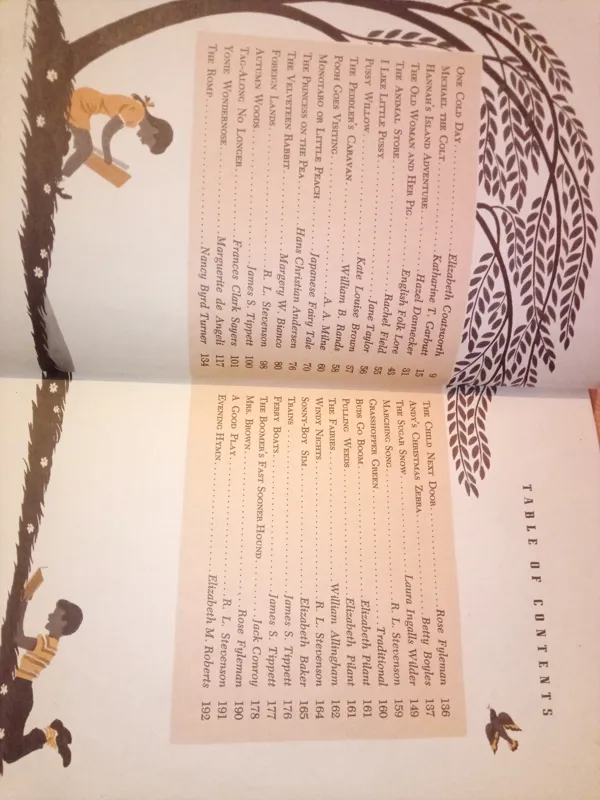 TABLE OF CONTENTS
ONE COLD DAY Elizabeth Coatsworth 9
MICHAEL THE COLT Katharine T. Garbutt 15
HANNAH'S ISLAND ADVENTURE Hazel Dannecker 31
THE OLD WOMAN AND HER PIG English Folk Lore 45
THE ANIMAL STORE Rachel Field 55
I LIKE LITTLE PUSSY Jane Taylor 56
PUSSY WILLOW Kate Louise Brown 57
THE PEDDLER'S CARAVAN William B. Rands 58
POOH GOES VISITING A. A. Milne 60
MONOTARO OR LITTLE PEACH Japanese Fairy Tale 70
THE PRINCESS ON THE PEA Hans Christian Andersen 76
THE VELVETEEN RABBIT Margery W. Bianco 80
FOREIGN LANDS R. L. Stevenson 98
AUTUMN WOODS James S. Tippett 100
TAG-ALONG NO LONGER Frances Clark Sayers 101
YONIE WONDERNOSE Marguerite de Angeli 117
THE ROMP Nancy Byrd Turner 134
THE CHILD NEXT DOOR Rose Fyleman 136
ANDY'S CHRISTMAS ZEBRA Betty Boyles 137
THE SUGAR SNOW Laura Ingalls Wilder 149
MARCHING SONG R. L. Stevenson 159
GRASSHOPPER GREEN Traditional 160
BUDS GO BOOM Elizabeth Pilant 161
PULLING WEEDS Elizabeth Pilant 161
THE FAIRIES William Allingham 162
WINDY NIGHTS R. L. Stevenson 164
SONNY-BOY SIM Elizabeth Baker 165
TRAINS James S. Tippett 176
FERRY BOATS James S. Tippett 177
THE BOOMER'S FAST SOONER HOUND Jack Conroy 178
MRS. BROWN Rose Fyleman 190
A GOOD PLAY R. L. Stevenson 191
EVENING HYMN Elizabeth M. Roberts 192